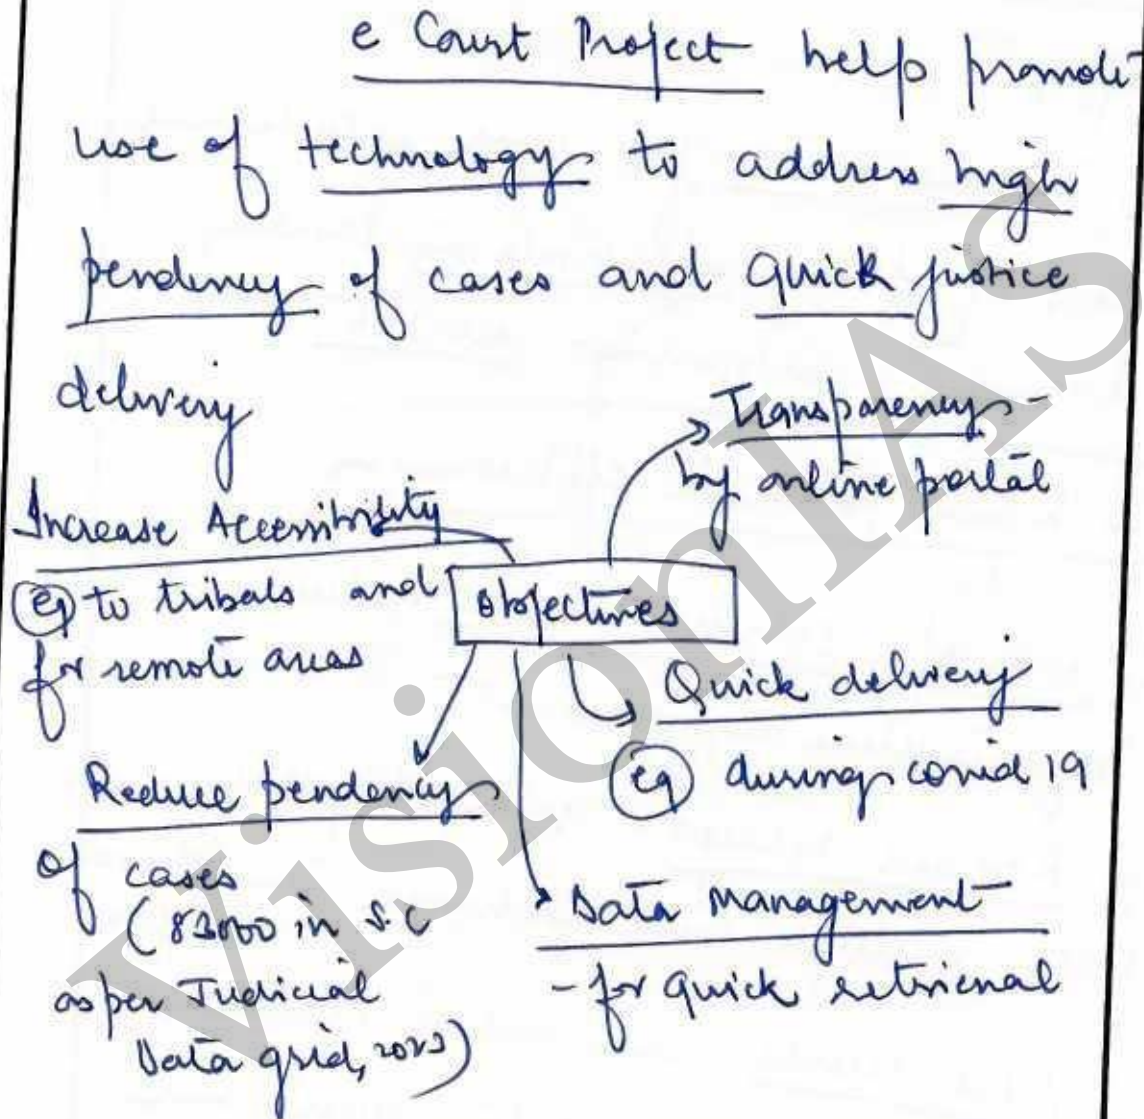 e Court Project help promote
use of technology to address high
pendency of cases and quick justice
delivery
Transparency -
by online portal
Increase Accessibility
eg to tribals and
for remote areas
Objectives
Quick delivery
eg during covid 19
Reduce pendency
of cases
(83000 in S.C
as per Judicial
Data grid, 2023)
Data Management
- for quick retrieval
VisionIAS